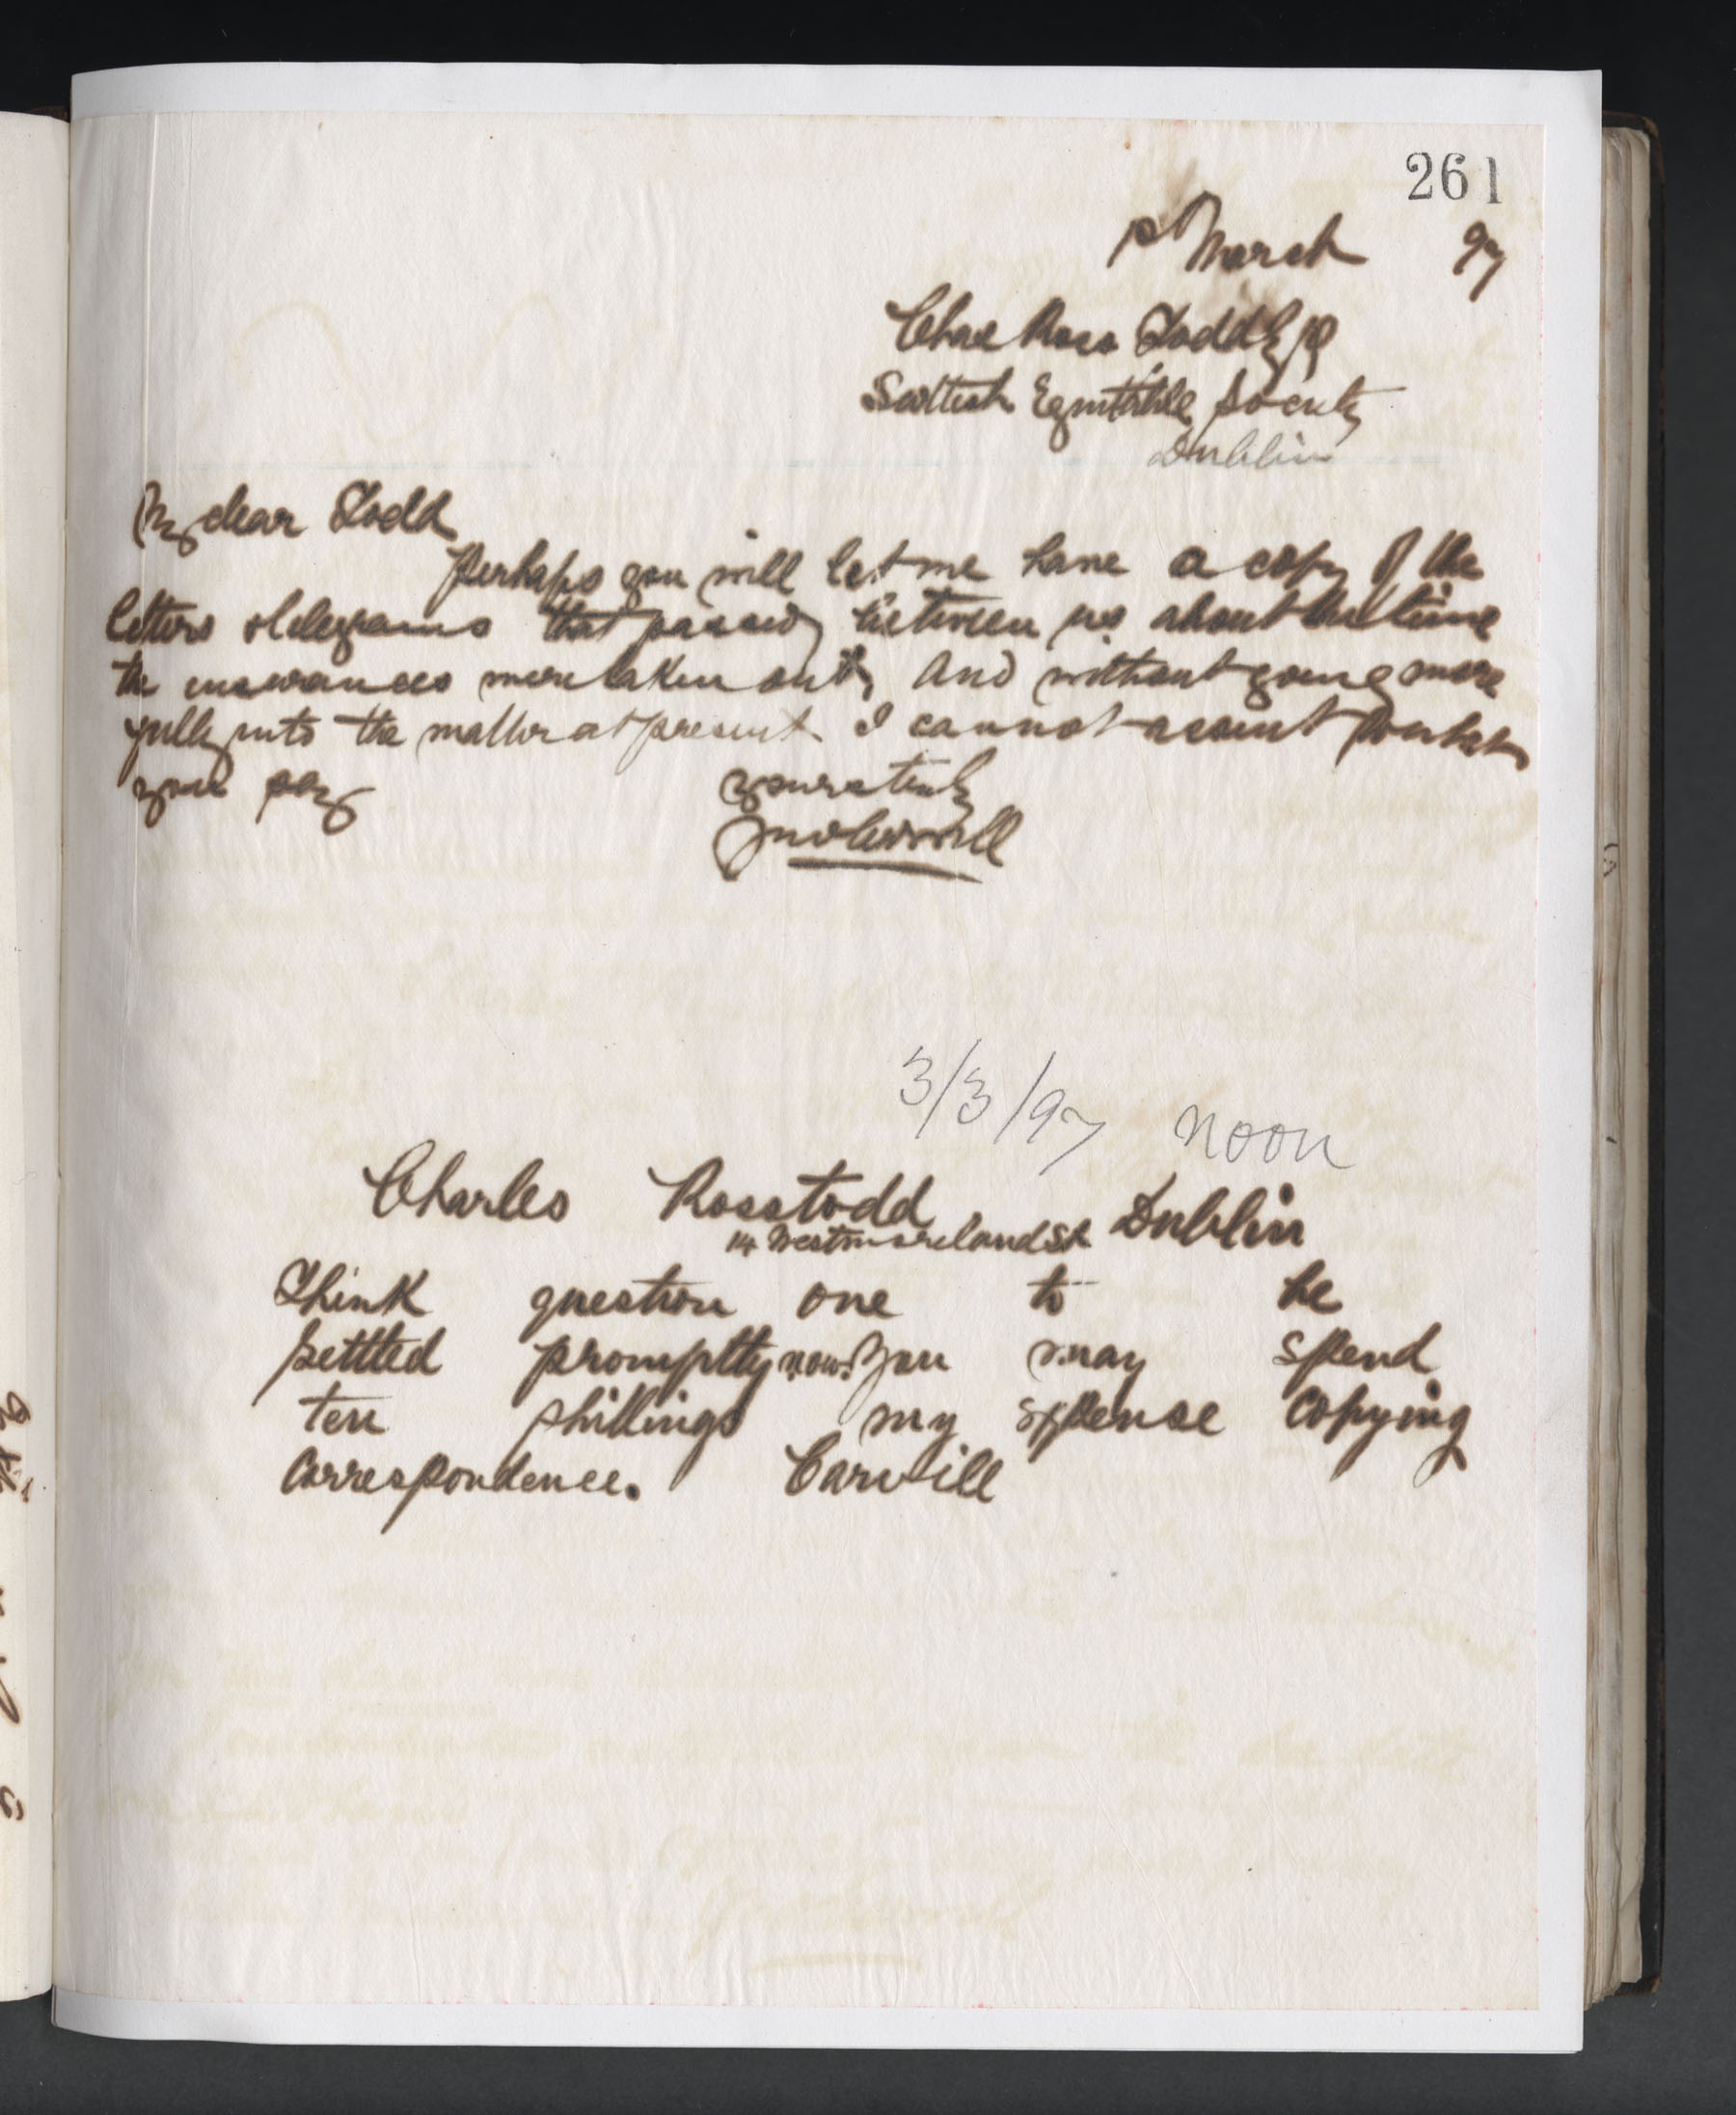 261
1st March 97
Chas Ross Todd Esq
Scottish Equitable Society
Dublin
My dear Todd
Perhaps you will let me have a copy of the
letters & telegrams that passed between us about the time
the insurances were taken out, and without going more
fully into the matter at present I cannot assent to what
you say
yours truly
Jno Carvill
3/3/97 noon
Charles Rosstodd Dublin
14 Westmoreland St
Think question one to be
settled promptly now. You may spend
ten shillings my expense copying
correspondence. Carvill